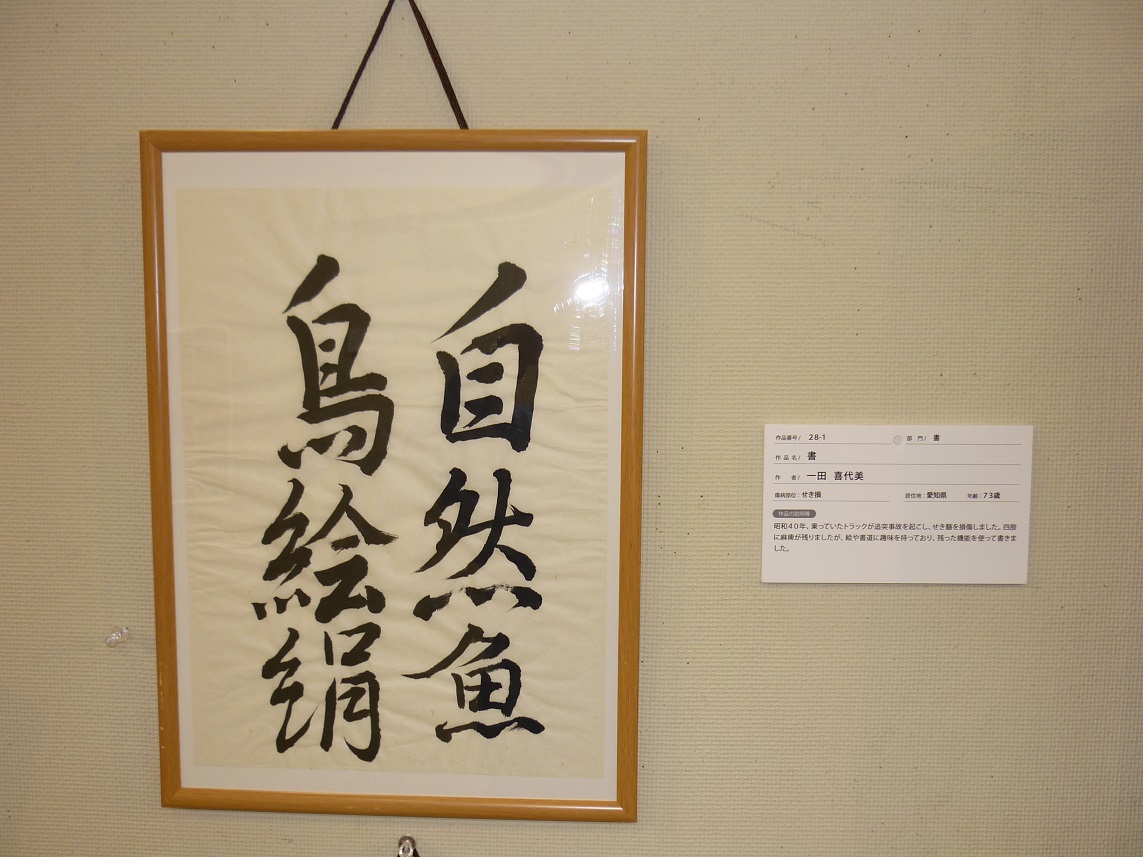 自然魚
鳥絵絹
作品番号/ 28-1 部 門/ 書
作 品 名/ 書
作 者/ 一田 喜代美
傷病部位:せき損 居住地:愛知県 年齢:73歳
作品の説明等
昭和40年、乗っていたトラックが追突事故を起こし、せき髄を損傷しました。四肢
に麻痺が残りましたが、絵や書道に趣味を持っており、残った機能を使って書きま
した。